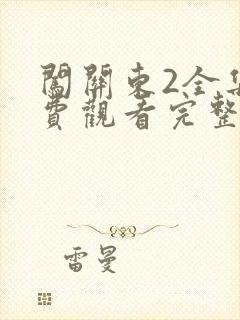 闖關東2全集
費觀看完整
雷曼